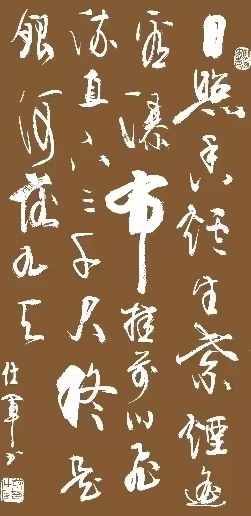 日照香炉生紫煙遥
看瀑布挂前川飛
流直下三千尺疑是
銀河落九天
仕軍书